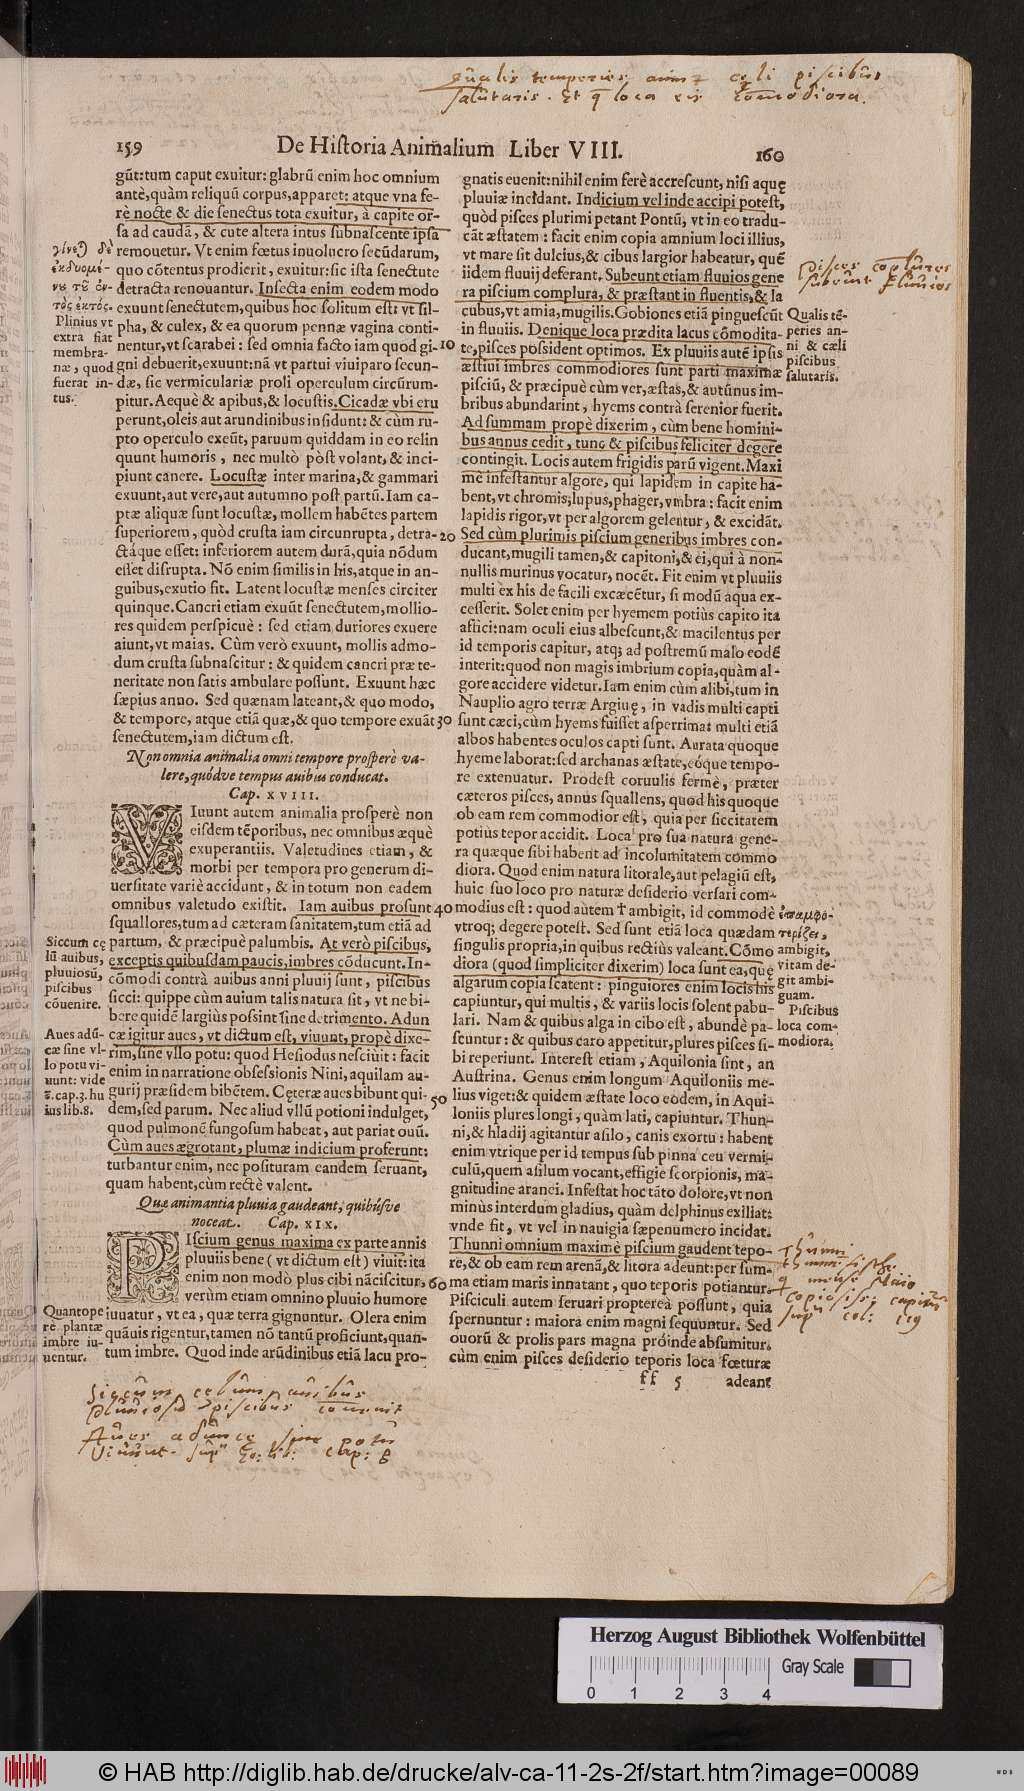 Qualis temperies anni & cæli piscibus
salutaris. Et loca eis comodiora.
159
De Historia Animalium Liber VIII.
160
gūt: tum caput exuitur: glabrū enim hoc omnium
antè, quàm reliquū corpus, apparet: atque vna fe-
rè nocte & die senectus tota exuitur, à capite or-
sa ad caudā, & cute altera intus subnascente ipsa
remouetur. Vt enim fœtus inuolucro secūdarum,
quo cōtentus prodierit, exuitur: sic ista senectute
detracta renouantur. Insecta enim eodem modo
exuunt senectutem, quibus hoc solitum est: vt sil-
pha, & culex, & ea quorum pennæ vagina conti-
nentur, vt scarabei: sed omnia facto iam quod gi-
gni debuerit, exuunt: nā vt partui viuiparo secun-
dæ, sic vermiculariæ proli operculum circūrum-
pitur. Aequè & apibus, & locustis. Cicadæ vbi eru
perunt, oleis aut arundinibus insidunt: & cùm ru-
pto operculo exeūt, paruum quiddam in eo relin
quunt humoris, nec multò pòst volant, & inci-
piunt canere. Locustæ inter marina, & gammari
exuunt, aut vere, aut autumno post partū. Iam ca-
ptæ aliquæ sunt locustæ, mollem habētes partem
superiorem, quòd crusta iam circunrupta, detra-
ctáque esset: inferiorem autem durā, quia nōdum
esset disrupta. Nō enim similis in his, atque in an-
guibus, exutio fit. Latent locustæ menses circiter
quinque. Cancri etiam exuūt senectutem, mollio-
res quidem perspicuè: sed etiam duriores exuere
aiunt, vt maias. Cùm verò exuunt, mollis admo-
dum crusta subnascitur: & quidem cancri præ te-
neritate non satis ambulare possunt. Exuunt hæc
sæpius anno. Sed quænam lateant, & quo modo,
& tempore, atque etiā quæ, & quo tempore exuāt
senectutem, iam dictum est.
Non omnia animalia omni tempore prosperè va-
lere, quódve tempus auibus conducat.
Cap. XVIII.
VIuunt autem animalia prosperè non
eisdem tēporibus, nec omnibus æquè
exuperantiis. Valetudines etiam, &
morbi per tempora pro generum di-
uersitate variè accidunt, & in totum non eadem
omnibus valetudo existit. Iam auibus prosunt
squallores, tum ad cæteram sanitatem, tum etiā ad
partum, & præcipuè palumbis. At verò piscibus,
exceptis quibusdam paucis, imbres cōducunt. In-
cōmodi contrà auibus anni pluuij sunt, piscibus
sicci: quippe cùm auium talis natura sit, vt ne bi-
bere quidē largiùs possint sine detrimento. Adun
cæ igitur aues, vt dictum est, viuunt, propè dixe-
rim, sine vllo potu: quod Hesiodus nesciuit: facit
enim in narratione obsessionis Nini, aquilam au-
gurij præsidem bibētem. Cęteræ aues bibunt qui-
dem, sed parum. Nec aliud vllū potioni indulget,
quod pulmonē fungosum habeat, aut pariat ouū.
Cùm aues ægrotant, plumæ indicium proferunt:
turbantur enim, nec posituram eandem seruant,
quam habent, cùm rectè valent.
Quæ animantia pluuia gaudeant, quibúsve
noceat. Cap. XIX.
PIscium genus maxima ex parte annis
pluuiis bene (vt dictum est) viuit: ita
enim non modò plus cibi nāciscitur,
verùm etiam omnino pluuio humore
iuuatur, vt ea, quæ terra gignuntur. Olera enim
quāuis rigentur, tamen nō tantū proficiunt, quan-
tum imbre. Quod inde arūdinibus etiā lacu pro-
γίνεϑ δὲ
ἐκδυομέ-
τὸς ἐκτός.
Plinius vt
extra fiat
membra-
næ, quod
fuerat in-
tus.
Siccum cę
lū auibus,
pluuiosū,
piscibus
cōuenire.
Aues adū-
cæ sine vl-
lo potu vi-
uunt: vide
s. cap. 3. hu
ius lib. 8.
Quantope
re plantæ
imbre iu-
uentur.
10
20
30
40
50
60
gnatis euenit: nihil enim ferè accrescunt, nisi aquę
pluuiæ incidant. Indicium vel inde accipi potest,
quòd pisces plurimi petant Pontū, vt in eo tradu-
cāt æstatem: facit enim copia amnium loci illius,
vt mare sit dulcius, & cibus largior habeatur, quē
iidem fluuij deferant. Subeunt etiam fluuios gene
ra piscium complura, & præstant in fluentis, & la
cubus, vt amia, mugilis. Gobiones etiā pinguescūt
in fluuiis. Denique loca prædita lacus cōmodita-
te, pisces possident optimos. Ex pluuiis autē ipsis
æstiui imbres commodiores sunt parti maximæ
pisciū, & præcipuè cùm ver, æstas, & autūnus im-
bribus abundarint, hyems contrà serenior fuerit.
Ad summam propè dixerim, cùm bene homini-
bus annus cedit, tunc & piscibus feliciter degere
contingit. Locis autem frigidis parū vigent. Maxi
mè infestantur algore, qui lapidem in capite ha-
bent, vt chromis, lupus, phager, vmbra: facit enim
lapidis rigor, vt per algorem gelentur, & excidāt.
Sed cùm plurimis piscium generibus imbres con-
ducant, mugili tamen, & capitoni, & ei, qui à non-
nullis murinus vocatur, nocēt. Fit enim vt pluuiis
multi ex his de facili excæcētur, si modū aqua ex-
cesserit. Solet enim per hyemem potiùs capito ita
affici: nam oculi eius albescunt, & macilentus per
id temporis capitur, atq; ad postremū malo eodē
interit: quod non magis imbrium copia, quàm al-
gore accidere videtur. Iam enim cùm alibi, tum in
Nauplio agro terræ Argiuę, in vadis multi capti
sunt cæci, cùm hyems fuisset asperrima: multi etiā
albos habentes oculos capti sunt. Aurata quoque
hyeme laborat: sed archanas æstate, eóque tempo-
re extenuatur. Prodest coruulis fermè, præter
cæteros pisces, annus squallens, quod his quoque
ob eam rem commodior est, quia per siccitatem
potiùs tepor accidit. Loca pro sua natura gene-
ra quæque sibi habent ad incolumitatem commo
diora. Quod enim natura litorale, aut pelagiū est,
huic suo loco pro naturæ desiderio versari com-
modius est: quod autem † ambigit, id commodè
vtroq; degere potest. Sed sunt etiā loca quædam
singulis propria, in quibus rectiùs valeant. Cōmo
diora (quod simpliciter dixerim) loca sunt ea, quę
algarum copia scatent: pinguiores enim locis his
capiuntur, qui multis, & variis locis solent pabu-
lari. Nam & quibus alga in cibo est, abundè pa-
scuntur: & quibus caro appetitur, plures pisces si-
bi reperiunt. Interest etiam, Aquilonia sint, an
Austrina. Genus enim longum Aquiloniis me-
lius viget: & quidem æstate loco eodem, in Aqui-
loniis plures longi, quàm lati, capiuntur. Thun-
ni, & hladij agitantur asilo, canis exortu: habent
enim vtrique per id tempus sub pinna ceu vermi-
culū, quem asilum vocant, effigie scorpionis, ma-
gnitudine aranei. Infestat hoc tāto dolore, vt non
minùs interdum gladius, quàm delphinus exiliat:
vnde fit, vt vel in nauigia sæpenumero incidat.
Thunni omnium maximè piscium gaudent tepo-
re, & ob eam rem arenā, & litora adeunt: per sum-
ma etiam maris innatant, quo teporis potiantur.
Pisciculi autem seruari propterea possunt, quia
spernuntur: maiora enim magni sequuntur. Sed
ouorū & prolis pars magna próinde absumitur,
cùm enim pisces desiderio teporis loca fœturæ
ff 5 adeant
Pisces coplures
subeunt fluuios
Qualis tē-
peries an-
ni & cæli
piscibus
salutaris.
ἐπαμφο-
τερίζει,
ambigit,
vitam de-
git ambi-
guam.
Piscibus
loca com-
modiora.
Thunni
mense Maio
copiosiss: capiūtur
sup col: 119
Siccum celum auibus
Pluuiosu piscibus conuenit
Aues adunce sine potu
Viuunt. sup eo: lib: cap: 3
Herzog August Bibliothek Wolfenbüttel
Gray Scale
0 1 2 3 4
© HAB http://diglib.hab.de/drucke/alv-ca-11-2s-2f/start.htm?image=00089